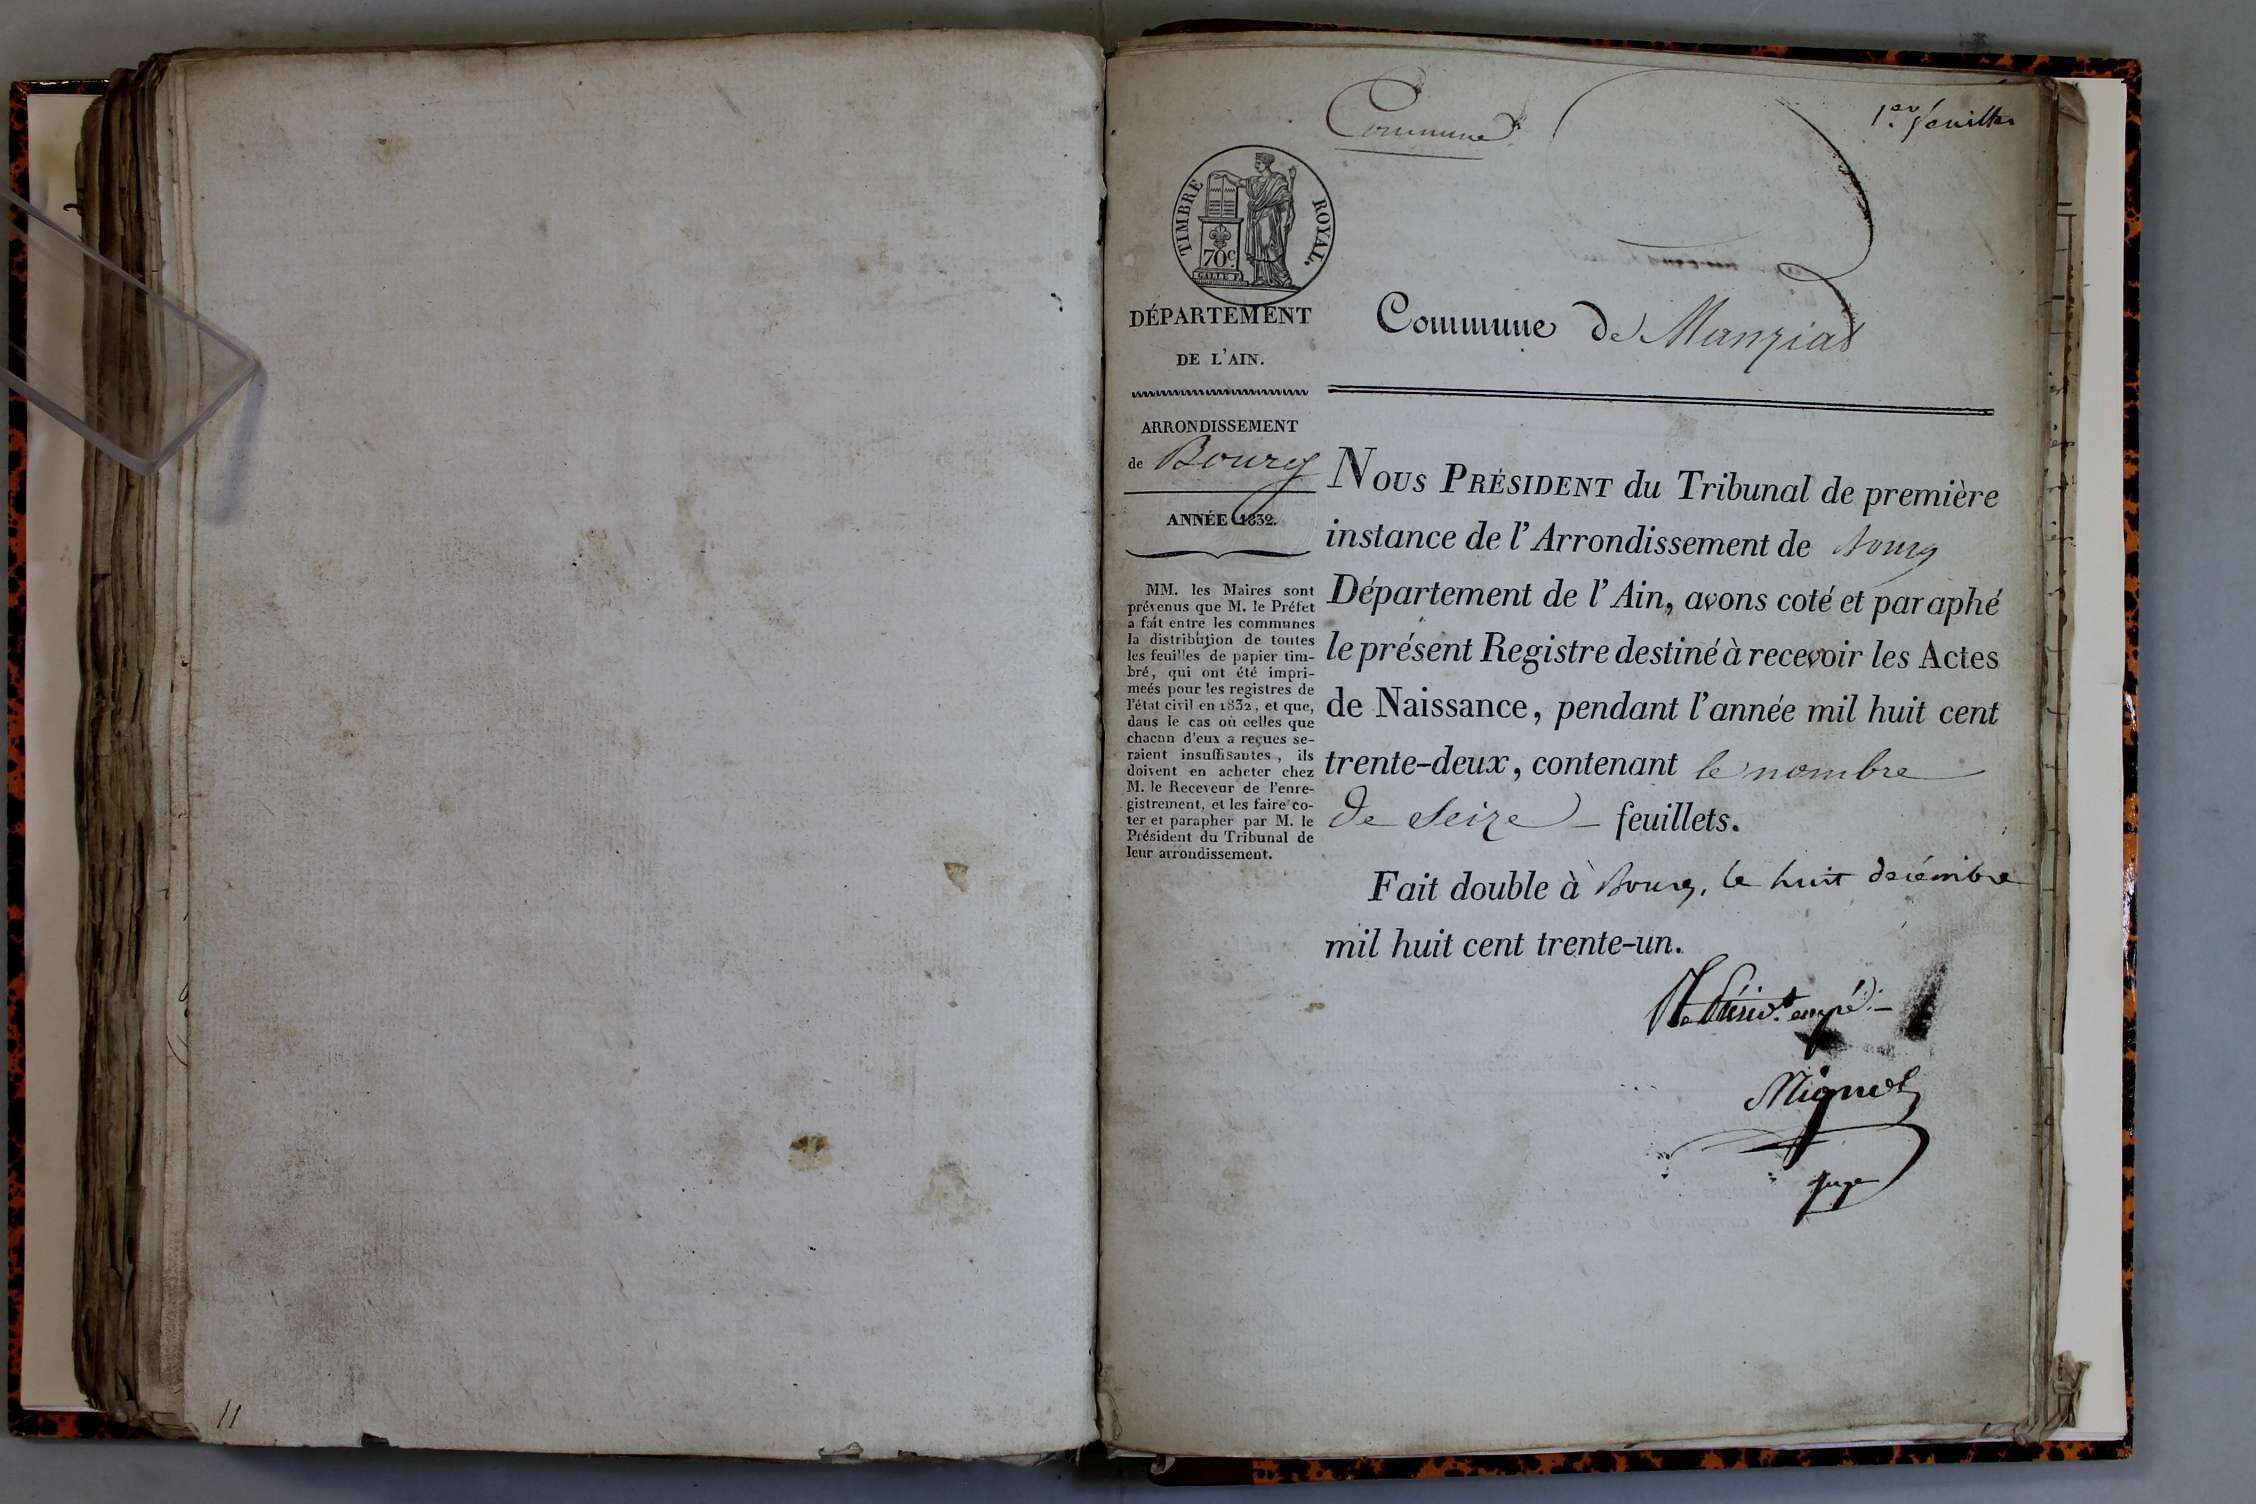 11
Commune
1.er feuillet
TIMBRE ROYAL.
70.C
GALLE F.
DÉPARTEMENT
DE L'AIN.
ARRONDISSEMENT
de Bourg
ANNÉE 1832.
MM. les Maires sont
prévenus que M. le Préfet
a fait entre les communes
la distribution de toutes
les feuilles de papier tim-
bré, qui ont été impri-
meés pour les registres de
l'état civil en 1832, et que,
dans le cas où celles que
chacun d'eux a reçues se-
raient insuffisantes, ils
doivent en acheter chez
M. le Receveur de l'enre-
gistrement, et les faire co-
ter et parapher par M. le
Président du Tribunal de
leur arrondissement.
Commune de Manziat
NOUS PRÉSIDENT du Tribunal de première
instance de l'Arrondissement de Bourg
Département de l'Ain, avons coté et paraphé
le présent Registre destiné à recevoir les Actes
de Naissance, pendant l'année mil huit cent
trente-deux, contenant le nombre
de Seize feuillets.
Fait double à Bourg, le huit décembre
mil huit cent trente-un.
empé
Mignot
juge